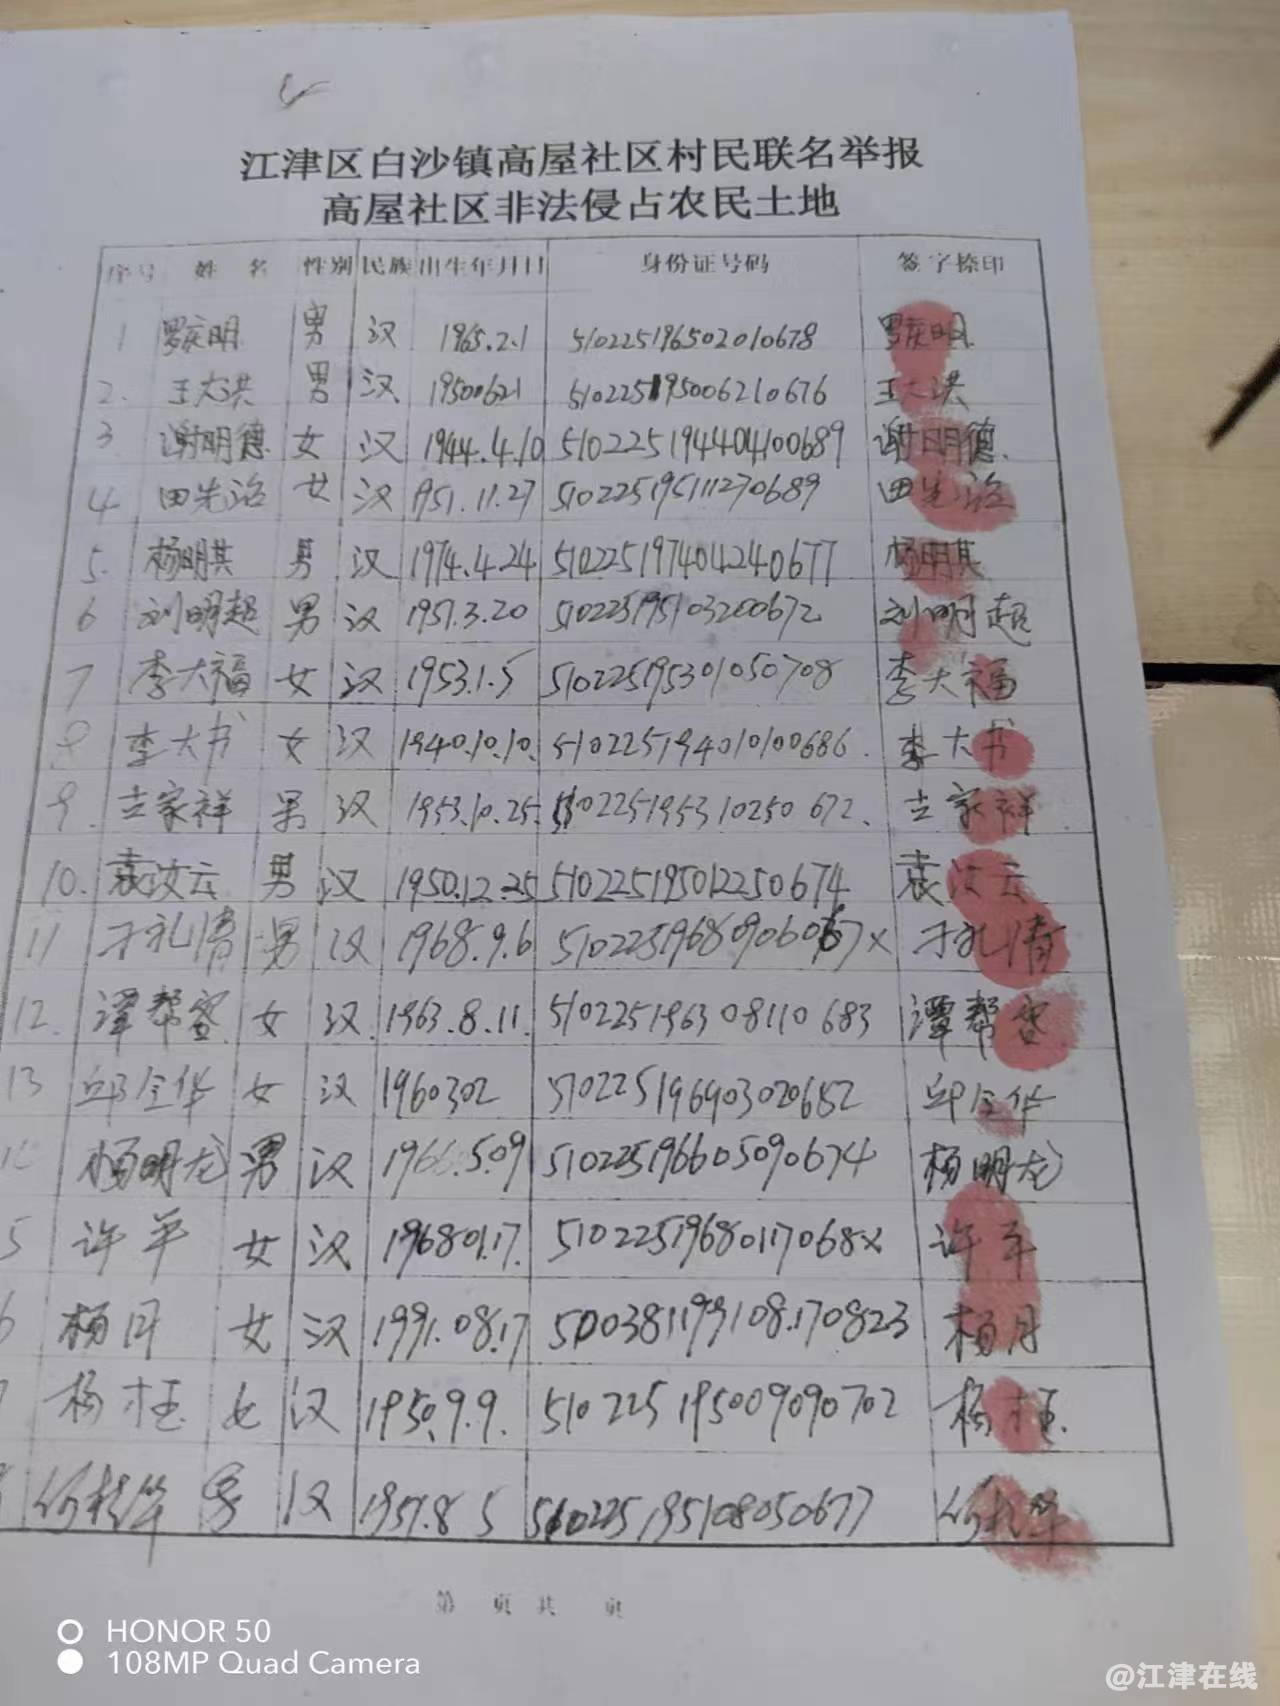 江津区白沙镇高屋社区村民联名举报
高屋社区非法侵占农民土地
序号 姓名 性别 民族 出生年月日 身份证号码 签字捺印
1 罗庆明 男 汉 1965.2.1 510225196502010678 罗庆明
2. 王大洪 男 汉 19500621 510225195006210676 王大洪
3 谢明德 女 汉 1944.4.10 510225194404100689 谢明德
4 田先治 女 汉 1951.11.27 510225195111270689 田先治
5. 杨明其 男 汉 1974.4.24 510225197404240677 杨明其
6 刘明超 男 汉 1951.3.20 510225195103200672 刘明超
7 李大福 女 汉 1953.1.5 510225195301050708 李大福
8 李大书 女 汉 1940.10.10. 510225194010100686. 李大书
9. 家祥 男 汉 1953.10.25. 510225195310250672. 家祥
10. 袁汝云 男 汉 1950.12.25 510225195012250674 袁汝云
11 礼清 男 汉 1968.9.6 51022519680906067X 礼清
12. 谭帮 女 汉 1963.8.11. 510225196308110683 谭帮
13 邱全华 女 汉 1960302 邱全华
杨明龙 男 汉 1966.5.09 510225196605090674 杨明龙
5 许平 女 汉 19680117. 51022519680117068X 许平
6 杨月 女 汉 1991.08.17 500381199108.170823 杨月
杨 女 汉 1950.9.9. 510225195009090702 杨
华 男 汉 1951.8 5 510225195108050677 华
第 页 共 页
HONOR 50
108MP Quad Camera
@江津在线